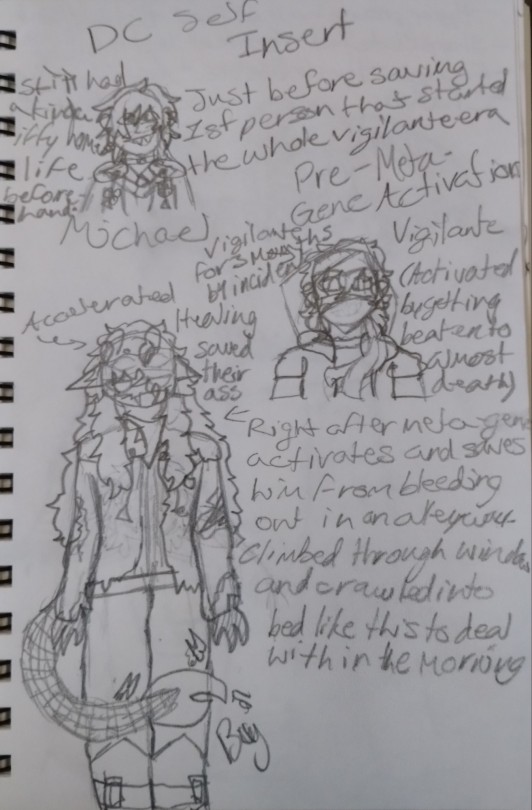 DC Self
Insert
still had
a kinda
iffy home
life
before-
hand.
Just before saving
1st person that started
the whole vigilante era
Michael
Pre-Meta-
Gene Activation
Vigilante
for 3 Months
by incident
Vigilante
(Activated
by getting
beaten to
almost
death)
Accelerated
Healing
saved
their
ass
Right after meta-gene
activates and saves
him from bleeding
out in an alleyway.
Climbed through window
and crawled into
bed like this to deal
with in the Morning